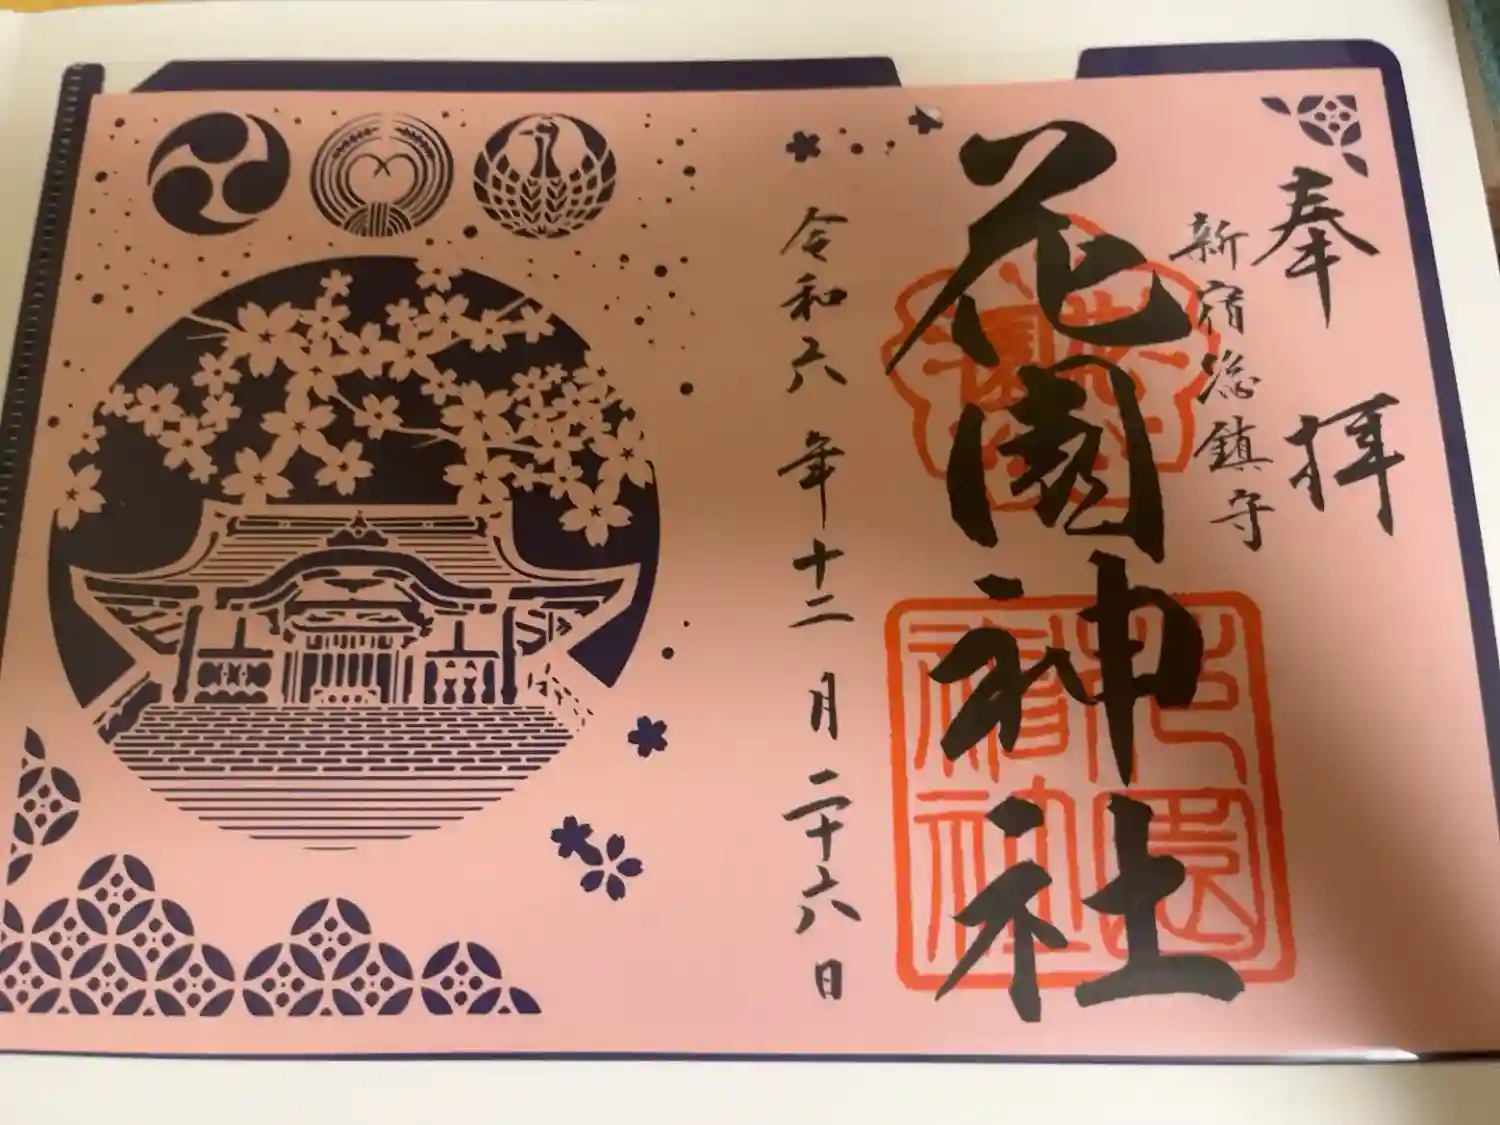 奉拝
新宿総鎮守
花園神社
花園神社
令和六年十二月二十六日